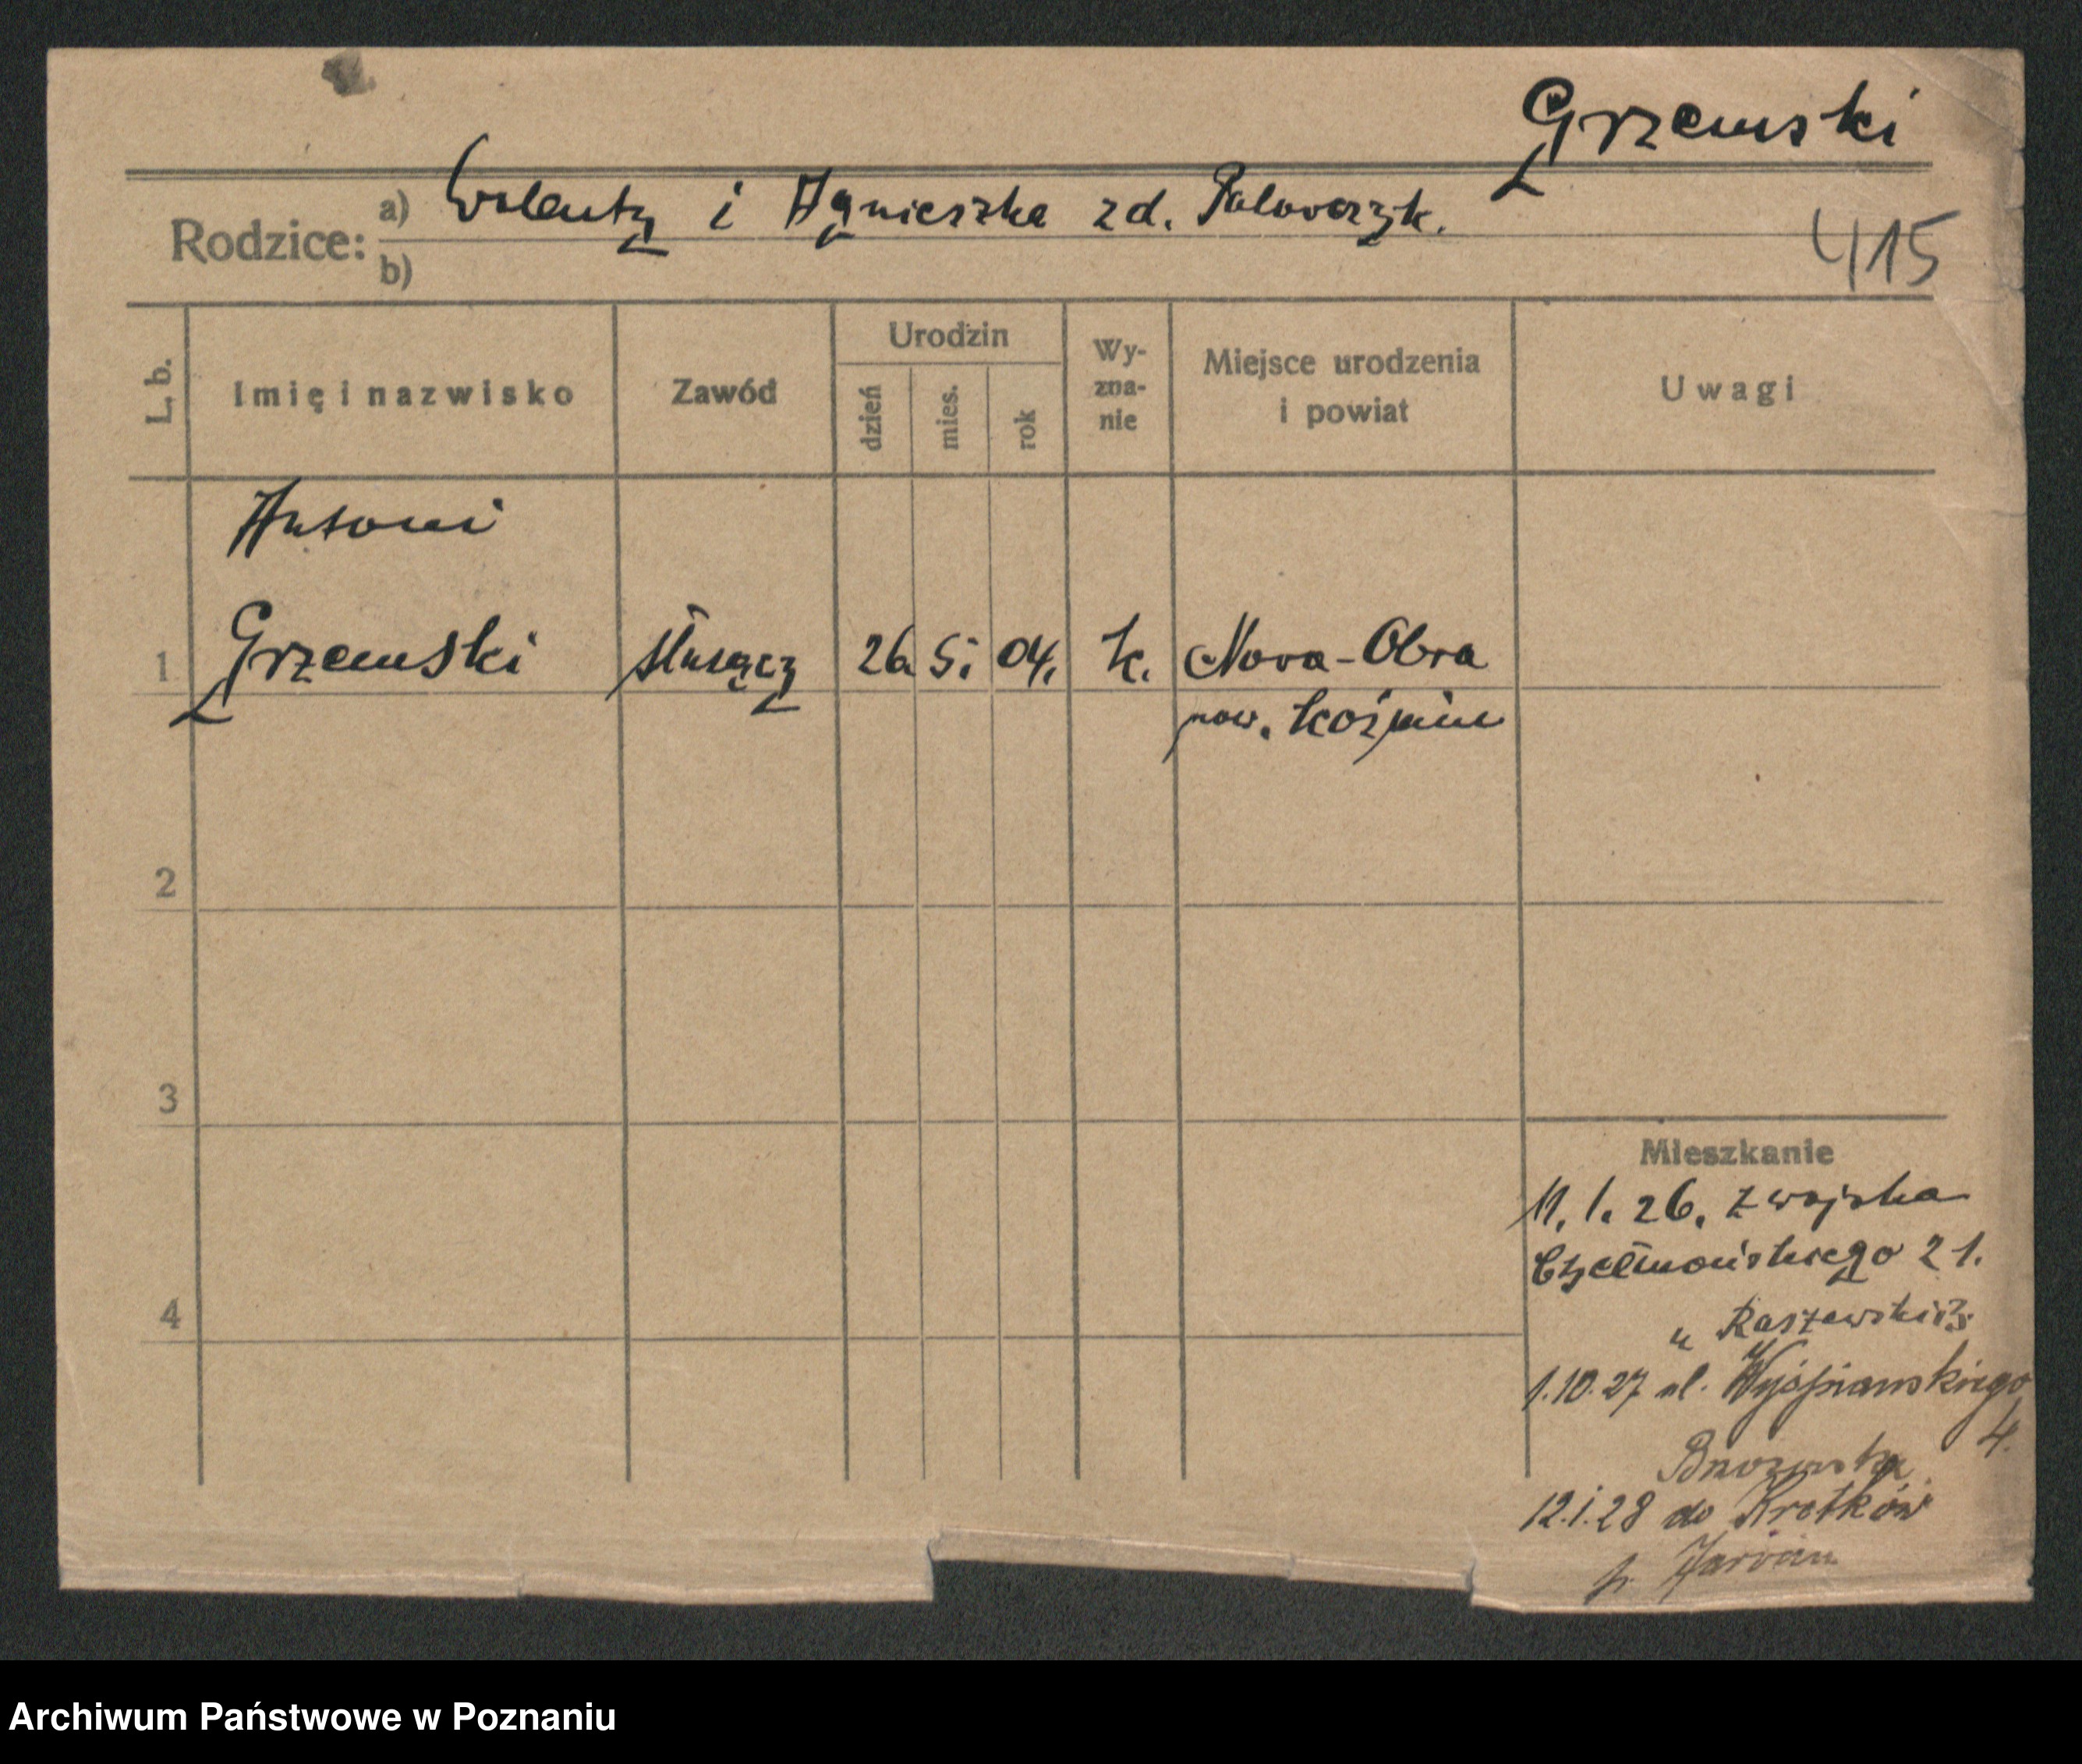 Grzemski
Rodzice: a) Walenty i Agnieszka zd. Palowczyk.
b)
415
L. b.
Imię i nazwisko
Zawód
Urodzin
dzień
mies.
rok
Wy-
zna-
nie
Miejsce urodzenia
i powiat
Uwagi
Antoni
1 Grzemski służący 26 5. 04. k. Nova-Obra
pow. Koźmin
2
3
4
Mieszkanie
11. 1. 26. z wojska
Chełmońskiego 21.
u Raszewski
1.10.27 ul. Wyspiańskiego
4.
12.1.28 do Krotków
p.
Archiwum Państwowe w Poznaniu